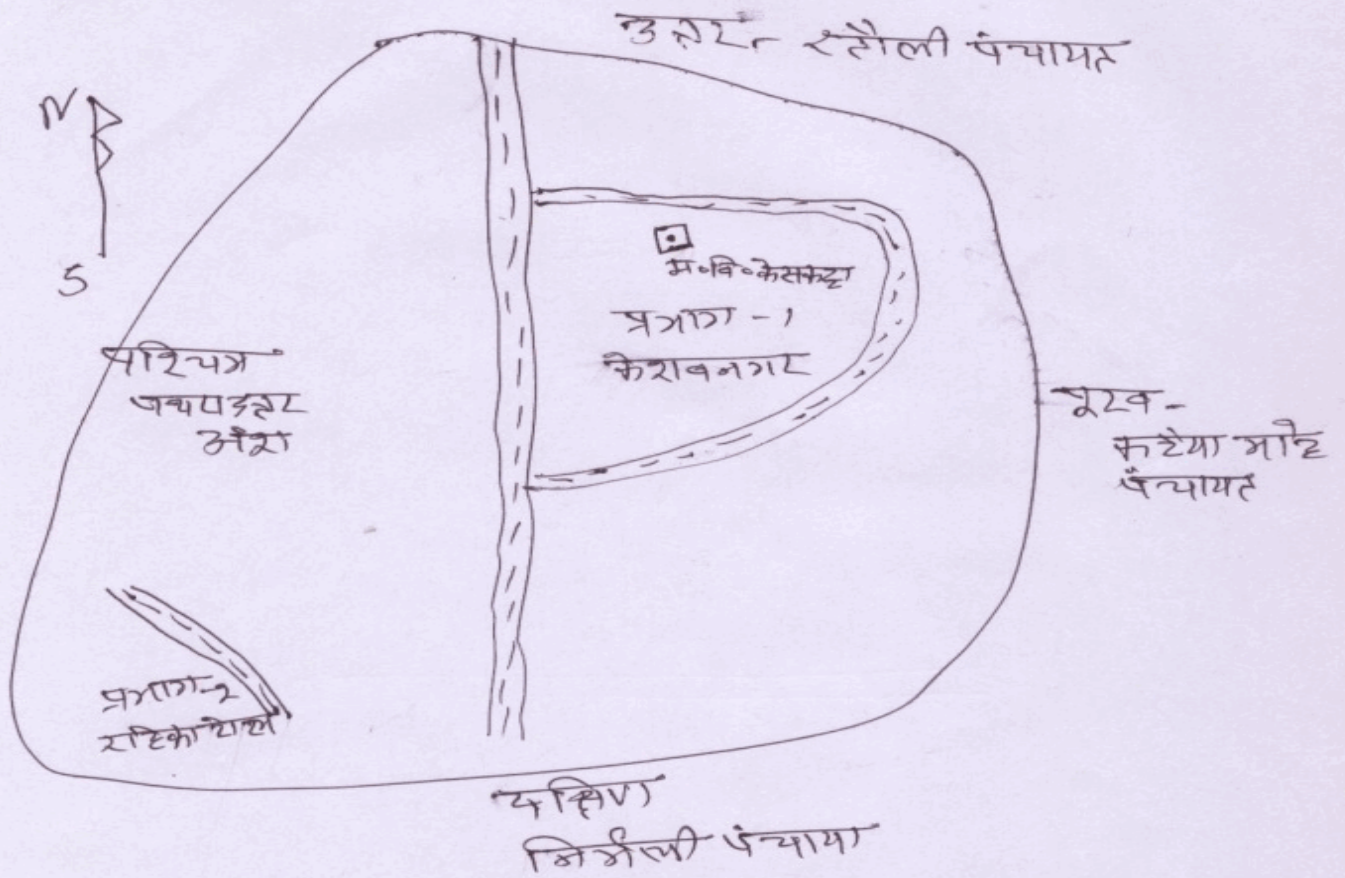 उत्तर - रतौली पंचायत
N
S
म॰वि॰केसकट्टा
प्रभाग -1
केशवनगर
पश्चिम
अंश
पूरब -
कटैया माहे
पंचायत
प्रभाग-2
रहिका टोला
दक्षिण
निर्मली पंचायत